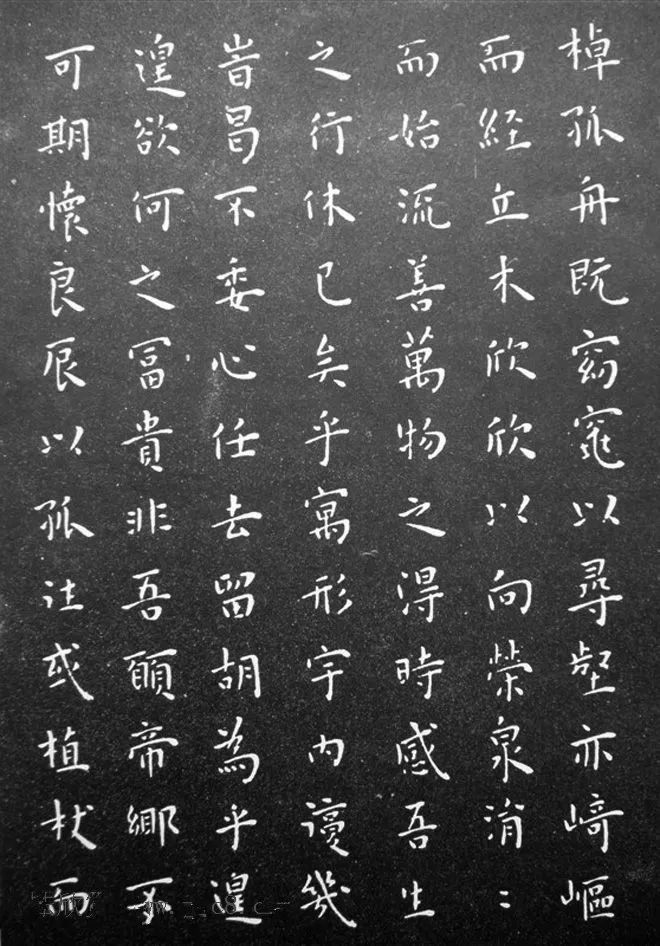 棹孤舟既窈窕以尋壑亦崎嶇
而經丘木欣欣以向榮泉涓〻
而始流善萬物之得時感吾生
之行休已矣乎寓形宇内復幾
旹曷不委心任去留胡為乎遑
遑欲何之冨貴非吾願帝鄉不
可期懷良辰以孤往或植杖而